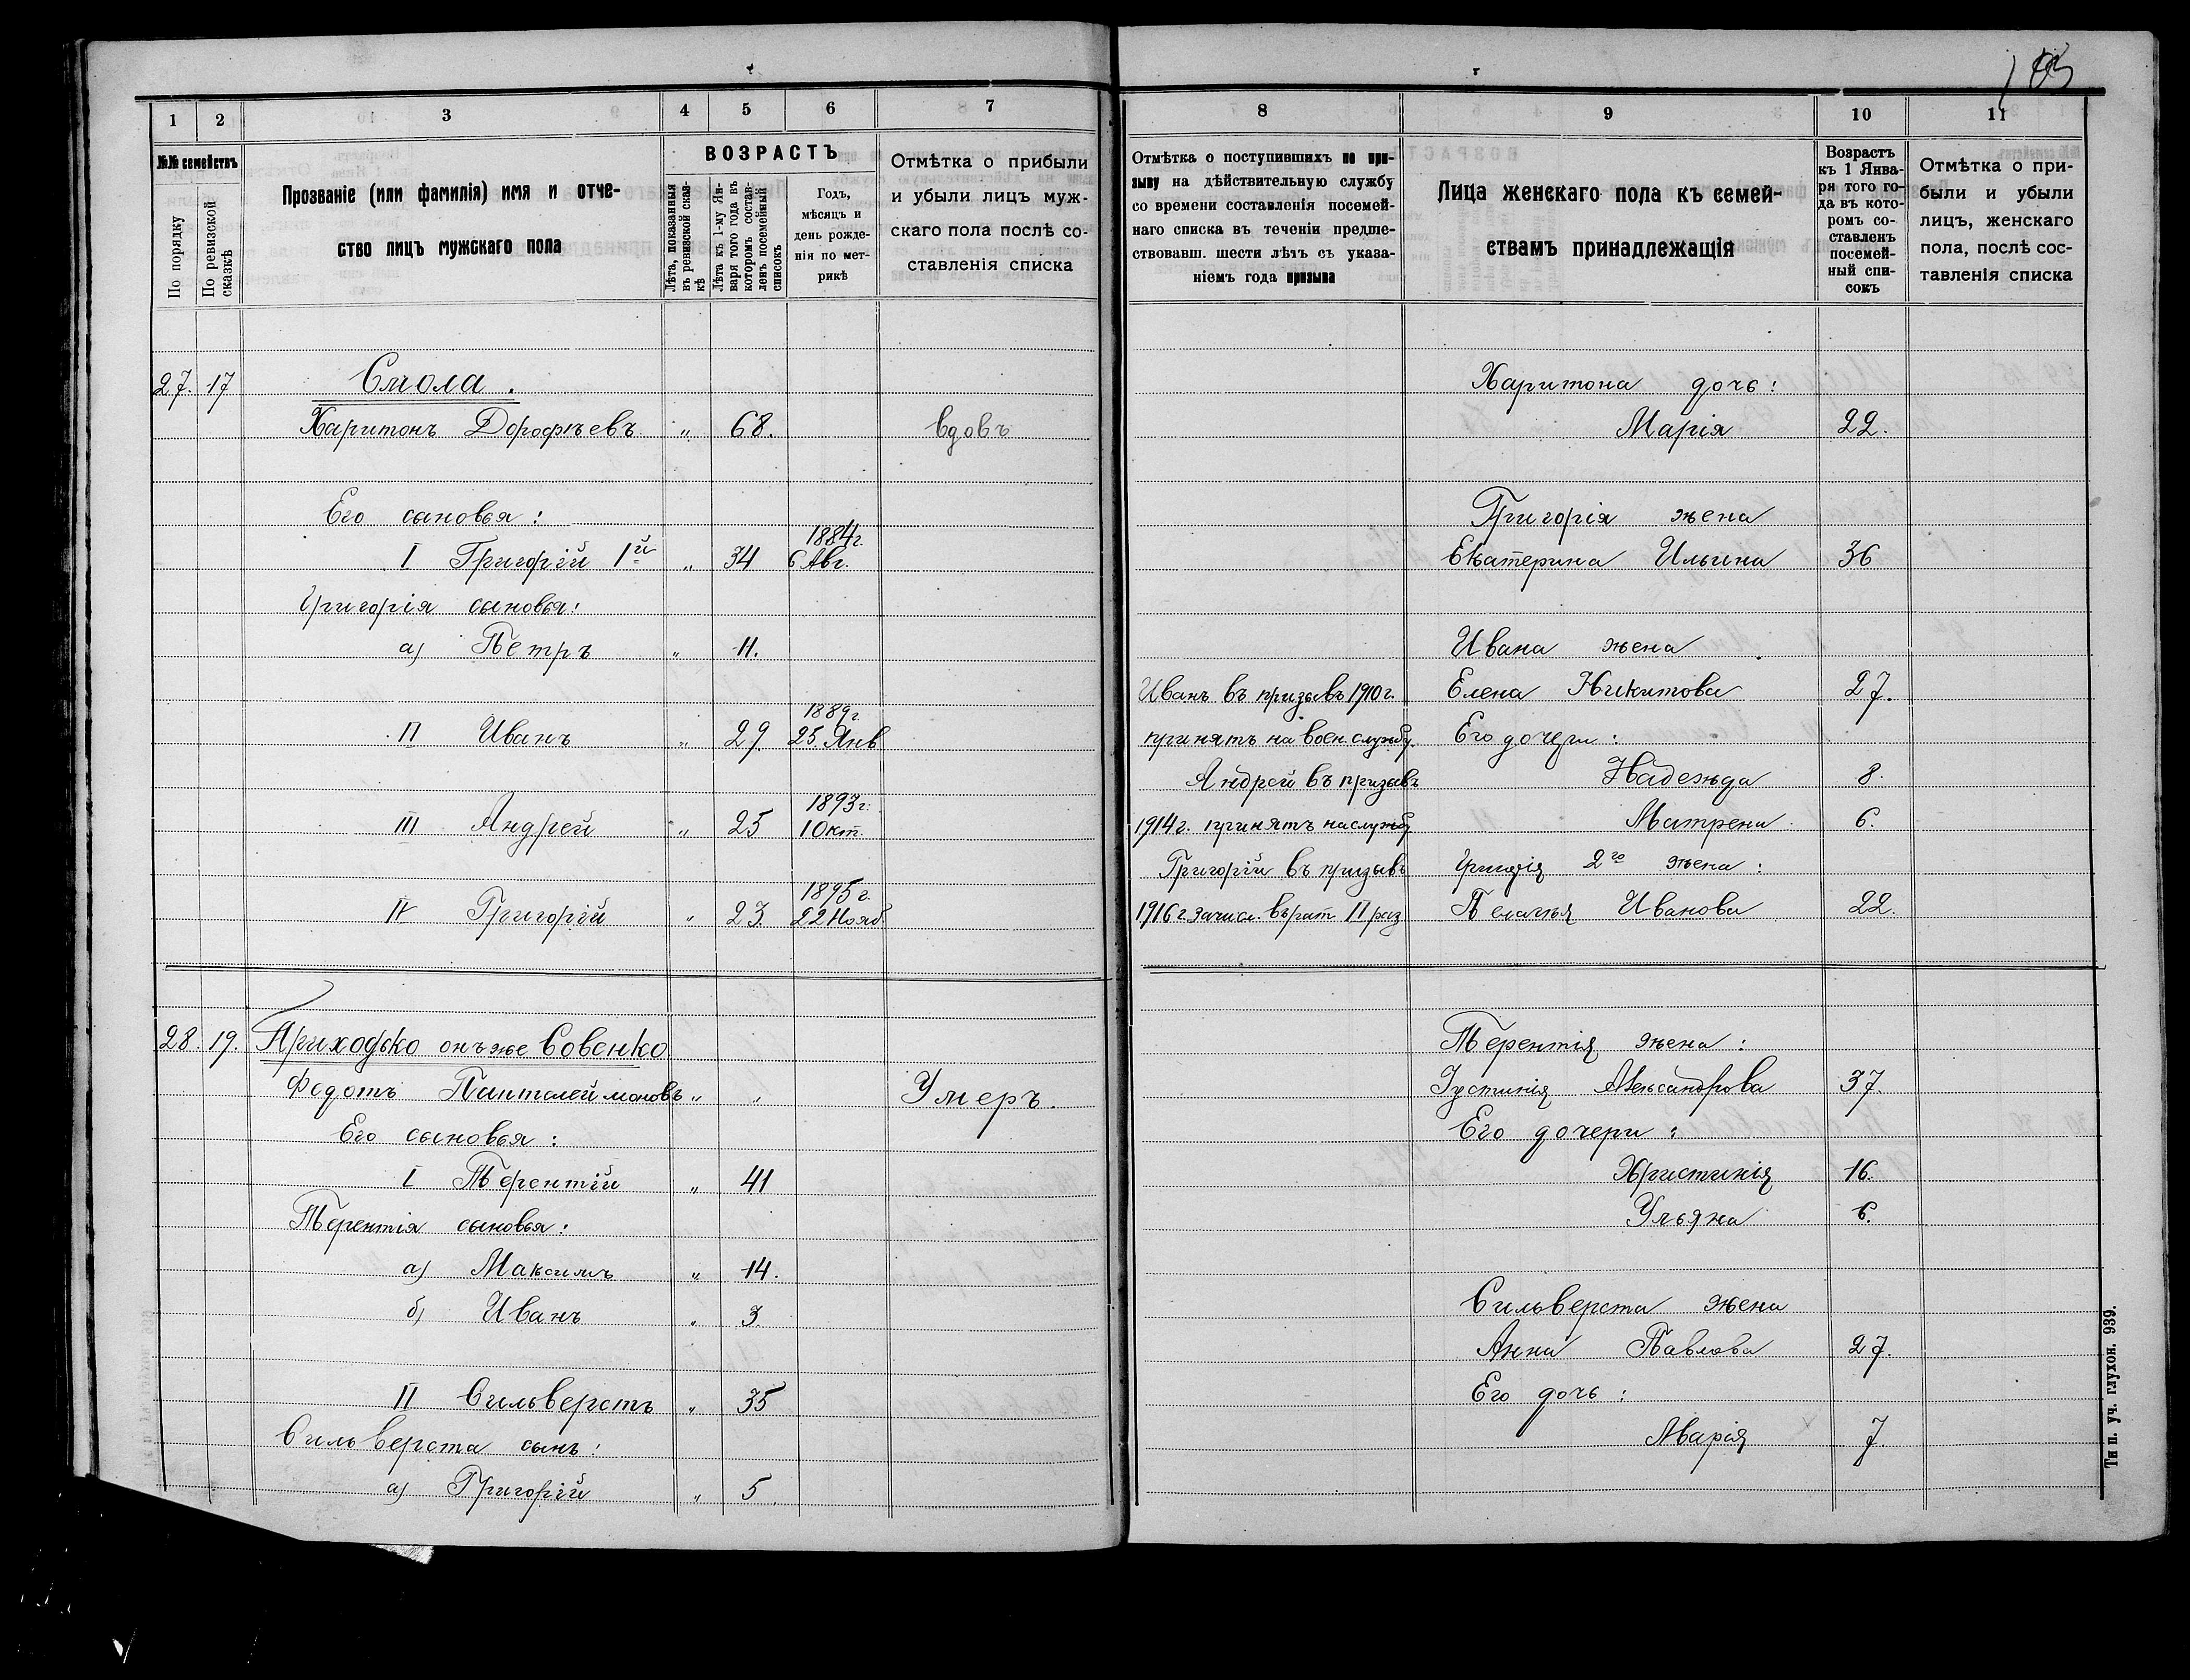 103
1 2 3 4 5 6 7
№№ семействъ
По порядку
По ревизской сказкѣ
Прозваніе (или фамилія) имя и отче-
ство лицъ мужскаго пола
ВОЗРАСТЪ
Лѣта, показанныя въ ревизской сказ-кѣ
Лѣта къ 1-му Ян-варя того года въ которомъ состав-ленъ посемейный списокъ
Годъ,
мѣсяцъ и
день рожде-
нія по мет-
рикѣ
Отмѣтка о прибыли
и убыли лицъ муж-
скаго пола послѣ со-
ставленія списка
27. 17 Смола.
Харитонъ Дорофѣевъ " 68. вдовъ
Его сыновья:
1884г.
I Григорій 1й " 34 6 Авг.
Григорія сыновья:
а) Петръ " 11.
1889г
II Иванъ " 29. 25 Янв
1893г.
III Андрей " 25 1 Окт.
1895г.
IV Григорій " 23. 22 Нояб.
28. 19. Приходько онъ же Совенко
Федотъ Пантелеймоновъ " " Умеръ.
Его сыновья:
I Терентій " 41
Терентія сыновья:
а) Максимъ " 14.
б) Иванъ " 3.
II Сильверстъ " 35
Сильверста сынъ:
а) Григорій " 5.
8 9 10 11
Отмѣтка о поступившихъ по при-
зыву на дѣйствительную службу
со времени составленія посемей-
наго списка въ теченіи предше-
ствовавш. шести лѣтъ съ указа-
ніемъ года призыва
Лица женскаго пола къ семей-
ствамъ принадлежащія
Возрастъ
къ 1 Янва-
ря того го-
да въ кото-
ромъ со-
ставленъ
посемей-
ный спи-
сокъ
Отмѣтка о при-
были и убыли
лицъ, женскаго
пола, послѣ сос-
тавленія списка
Харитона дочь:
Марія 22.
Григорія жена
Екатерина Ильина 36
Ивана жена
Иванъ въ призывъ 1910г. Елена Никитова 27.
принятъ на воен. службу. Его дочери:
Андрей въ призывъ Надежда 8.
1914г. принятъ на службу Матрена 6.
Григорій въ призывъ Григорія 2го жена:
1916г. зачисл. въ рат II раз Пелагія Иванова 22.
Терентія жена:
Іустинія Александрова 37.
Его дочери:
Христинія 16.
Ульяна 6.
Сильверста жена
Анна Павлова 27.
Его дочь:
Марія 7.
Тип. уч. глухон. 939.